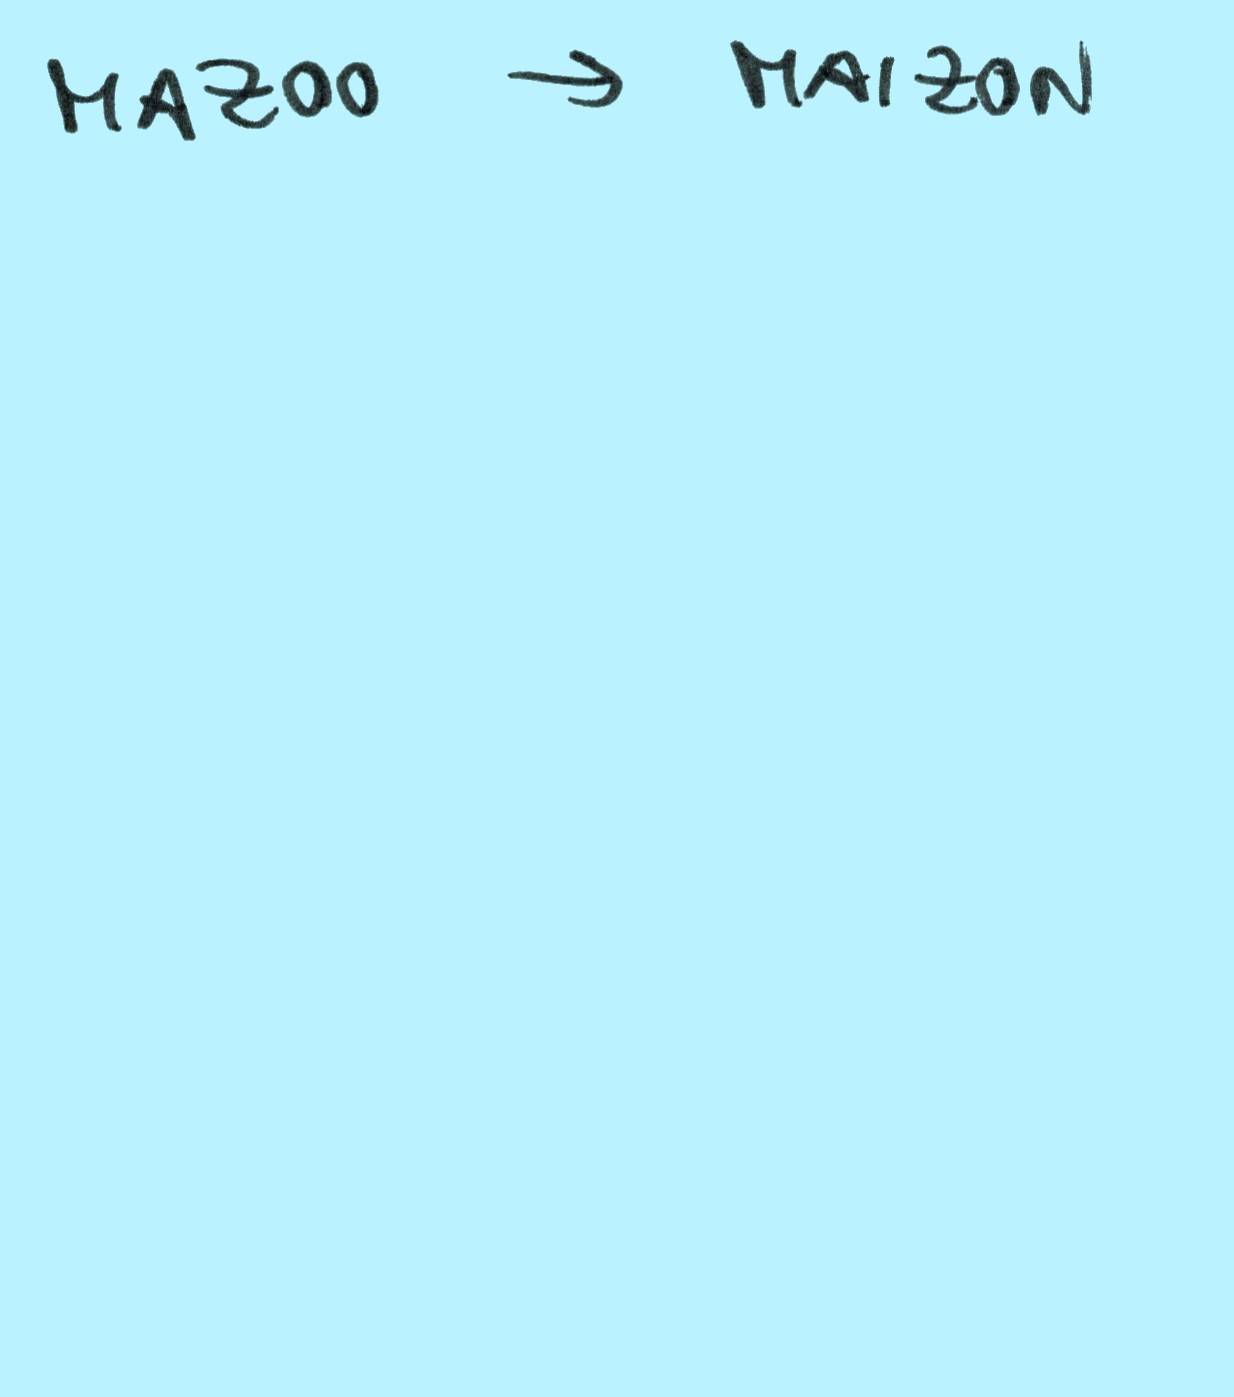 MAZOO → MAIZON